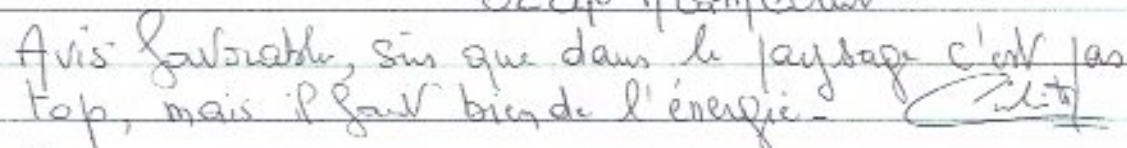 Avis favorable, sûr que dans le paysage c'est pas
top, mais il faut bien de l'énergie.